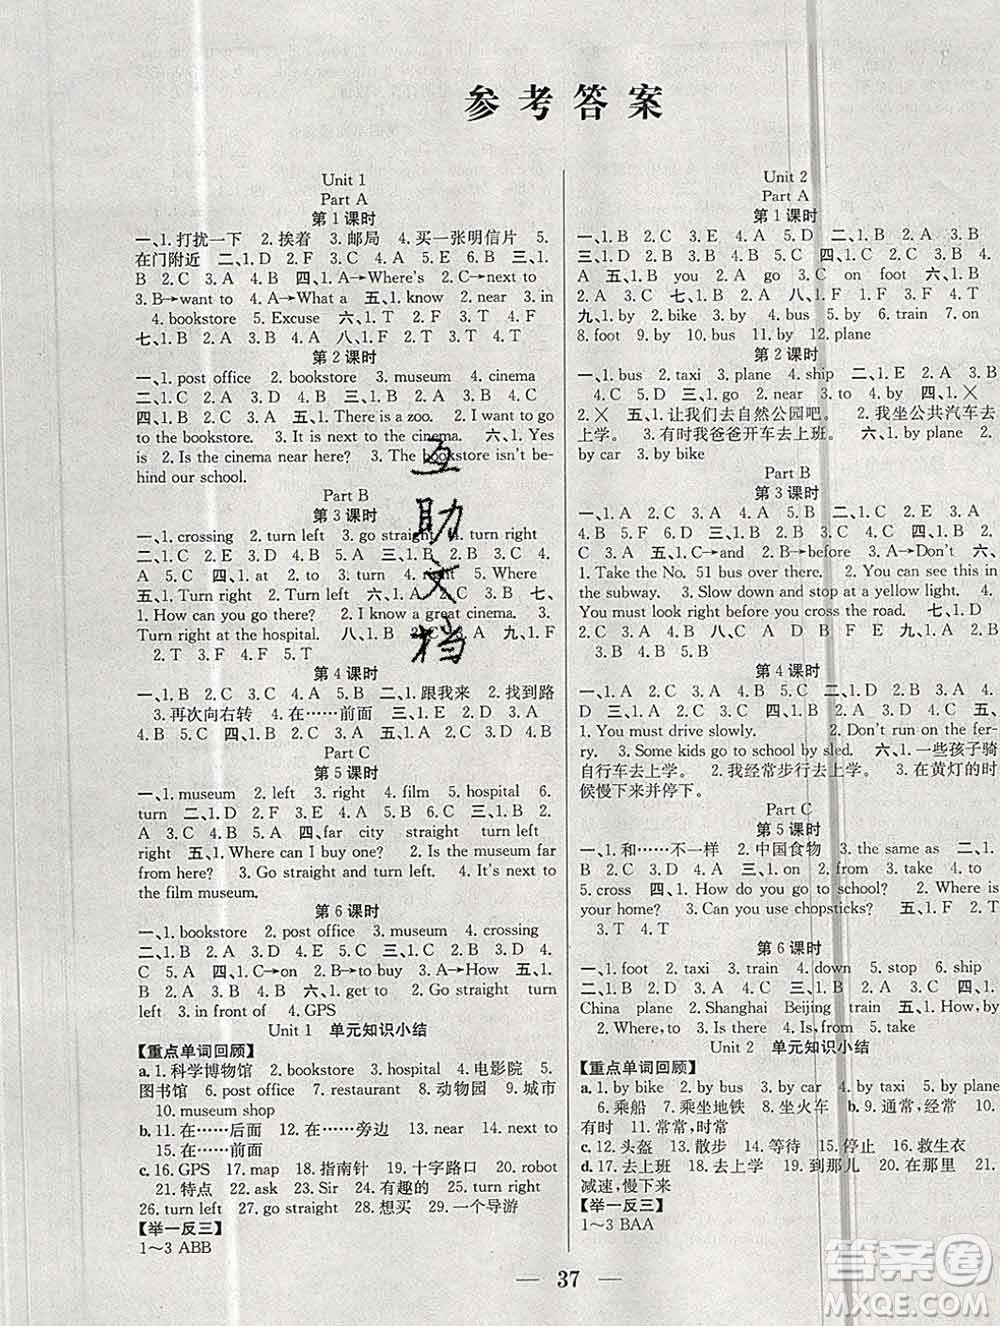 参考答案
Unit 1
Part A
第1课时
一、1. 打扰一下 2. 挨着 3. 邮局 4. 买一张明信片 5.
在门附近 二、1. D 2. F 3. C 4. B 5. E 三、1.
B 2. C 3. A 四、1. A→Where's 2. C→next to
3. B→want to 4. A→What a 五、1. know 2. near 3. in
4. bookstore 5. Excuse 六、1. T 2. F 3. T 4. T
七、1. B 2. A 3. B 4. A
第2课时
一、1. post office 2. bookstore 3. museum 4. cinema
二、1. C 2. D 3. B 4. A 三、1. B 2. A 3. C
四、1. B 2. A 五、1. There is a zoo. 2. I want to go
to the bookstore. 3. It is next to the cinema. 六、1. Yes
is 2. Is the cinema near here? 3. The bookstore isn't be-
hind our school.
Part B
第3课时
一、1. crossing 2. turn left 3. go straight 4. turn right
二、1. C 2. D 3. B 4. A 三、1. B 2. B 3. A 4.
C 四、1. at 2. to 3. turn 4. right 5. Where
五、1. Turn right 2. Turn left 六、1. B 2. B 七、
1. How can you go there? 2. I know a great cinema. 3.
Turn right at the hospital. 八、1. B 2. C 3. A 九、1. F
2. T 3. F 4. F 5. T
第4课时
一、1. B 2. C 3. C 4. A 5. A 二、1. 跟我来 2. 找到路
3. 再次向右转 4. 在……前面 三、1. E 2. D 3. A
4. B 5. C 四、1. B 2. C 3. B 4. A 5. C
Part C
第5课时
一、1. museum 2. left 3. right 4. film 5. hospital 6.
turn 二、1. D 2. B 3. A 4. C 5. E 三、1. B 2.
A 3. C 4. A 5. A 四、far city straight turn left
right 五、1. Where can I buy one? 2. Is the museum far
from here? 3. Go straight and turn left. 4. It's next to
the film museum.
第6课时
一、1. bookstore 2. post office 3. museum 4. crossing
二、1. B 2. A 3. D 4. E 5. C 三、1. B 2. D 3. D 4.
C 5. A 四、1. C→on 2. B→to buy 3. A→How 五、
1. B 2. A 3. B 六、1. get to 2. Go straight turn left
3. in front of 4. GPS
Unit 1 单元知识小结
【重点单词回顾】
a. 1. 科学博物馆 2. bookstore 3. hospital 4. 电影院 5.
图书馆 6. post office 7. restaurant 8. 动物园 9. 城市
10. museum shop
b. 11. 在……后面 12. 在……旁边 13. near 14. next to
15. 在……前面
c. 16. GPS 17. map 18. 指南针 19. 十字路口 20. robot
21. 特点 22. ask 23. Sir 24. 有趣的 25. turn right
26. turn left 27. go straight 28. 想买 29. 一个导游
【举一反三】
1~3 ABB
Unit 2
Part A
第1课时
一、1. B 2. C 3. E 4. A 5. D 二、1. B 2. A 3. B
三、1. D 2. E 3. A 4. C 5. B 四、1. C 2. B 3. A
五、1. B you 2. A go 3. C on foot 六、1. B
2. A 3. C 七、1. B 2. A 八、1. F 2. F 3. F 4. T
九、1. by 2. bike 3. by 4. bus 5. by 6. train 7. on
8. foot 9. by 10. bus 11. by 12. plane
第2课时
一、1. bus 2. taxi 3. plane 4. ship 二、1. E 2. C
3. A 4. B 5. D 三、1. go 2. near 3. to 四、1. ×
2. × 五、1. 让我们去自然公园吧。 2. 我坐公共汽车去
上学。 3. 有时我爸爸开车去上班。 六、1. by plane 2.
by car 3. by bike
Part B
第3课时
一、1. B 2. C 3. A 4. D 5. E 二、1. B 2. C 3. A
4. E 5. F 6. D 三、1. C→and 2. B→before 3. A→Don't 四、
1. Take the No. 51 bus over there. 2. You can see this in
the subway. 3. Slow down and stop at a yellow light. 4.
You must look right before you cross the road. 八、1. D
2. C 3. B 4. A 5. C 6. C 7. C 8. C 九、1. B 2. B
3. B 4. A
第4课时
一、1. C 2. D 3. B 4. A 二、1. A 2. C 3. C
三、1. C 2. A 3. C 4. A 四、1. C 2. B 3. A 五、
1. You must drive slowly. 2. Don't run on the fer-
ry. 3. Some kids go to school by sled. 六、1. 一些孩子骑
自行车去上学。 2. 我经常步行去上学。 3. 在黄灯的时
候慢下来并停下。
Part C
第5课时
一、1. 和……不一样 2. 中国食物 3. the same as 4. look
二、1. C 2. B 3. A 三、1. on 2. from 3. take 4. to
5. cross 四、1. How do you go to school? 2. Where is
your home? 3. Can you use chopsticks? 五、1. F 2. T
3. T 4. T
第6课时
一、1. foot 2. taxi 3. train 4. down 5. stop 6. ship
二、1. B 2. A 3. C 4. C 三、1. D 2. C 3. B 4. A 四、1.
China plane 2. Shanghai Beijing train 3. How, by
五、1. B 2. A 3. C 六、1. to 2. In 3. Is, from
4. must stop 5. take
Unit 2 单元知识小结
【重点单词回顾】
a. 1. by bike 2. by bus 3. by car 4. by taxi 5. by plane
6. 乘船 7. 乘坐地铁 8. 坐火车 b. 9. 通常,经常 10.
有时 11. 常常,时常
c. 12. 头盔 13. 散步 14. 等待 15. 停止 16. 救生衣
d. 17. 去上班 18. 去上学 19. 到那儿 20. 在那里 21.
减速,慢下来
【举一反三】
1~3 BAA
互助文档
37
答案圈
MXQE.COM